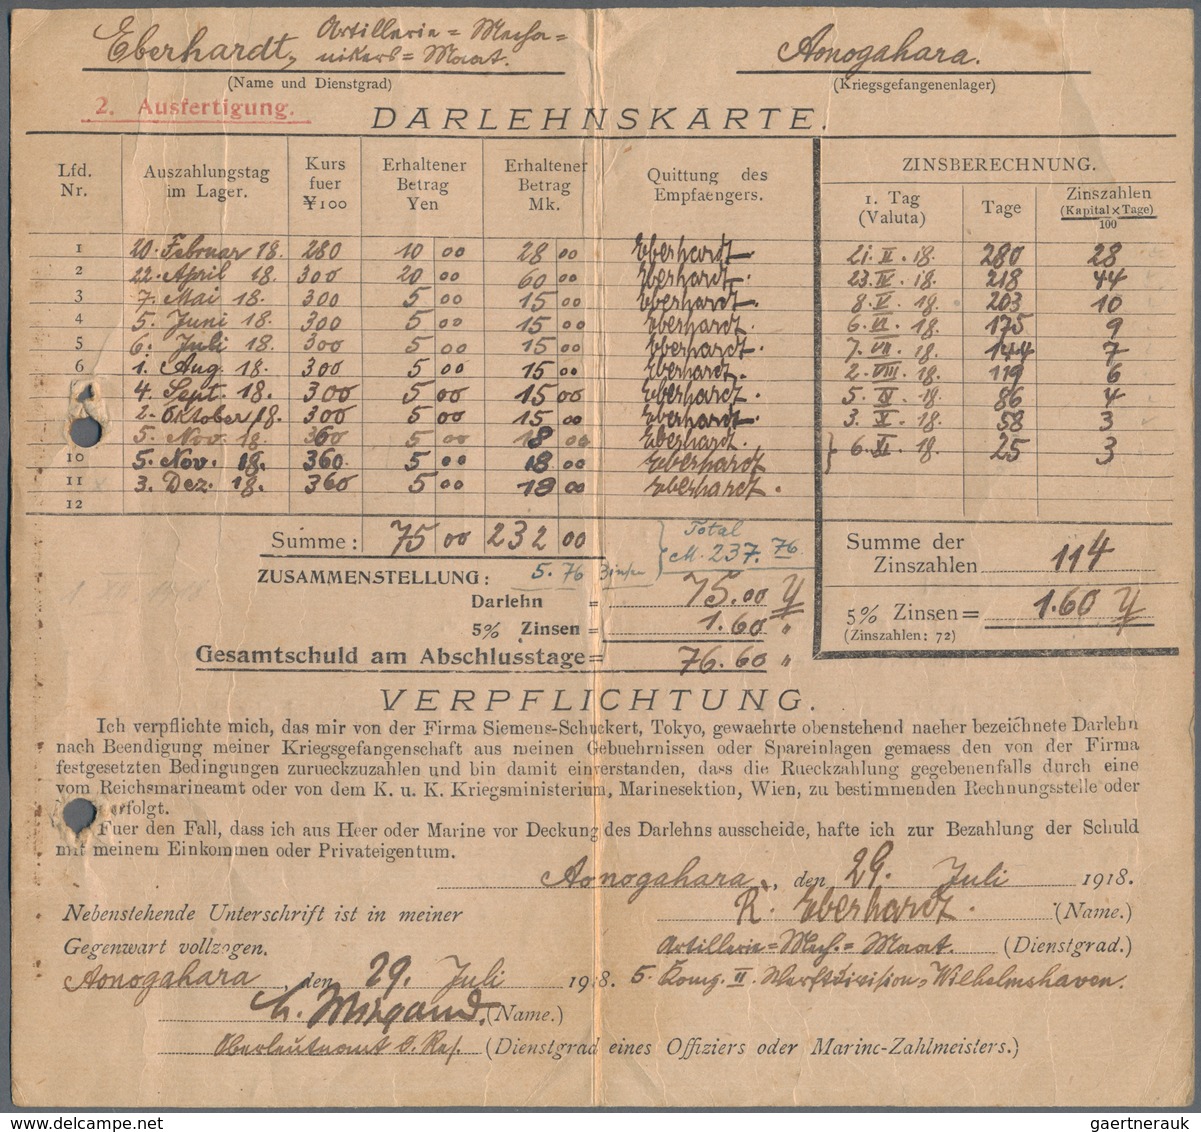 Eberhardt, Artillerie = Mecha =
nikers = Maat.
Aonogahara.
(Name und Dienstgrad)
(Kriegsgefangenenlager)
2. Ausfertigung.
DARLEHNSKARTE.
Lfd. Nr. Auszahlungstag im Lager. Kurs fuer ¥100 Erhaltener Betrag Yen Erhaltener Betrag Mk. Quittung des Empfaengers. ZINSBERECHNUNG. 1. Tag (Valuta) Tage Zinszahlen (Kapital × Tage) 100
1 20. Februar 18. 280 10 00 28 00 Eberhardt 21. II. 18. 280 28
2 22. April 18. 300 20 00 60 00 Eberhardt. 23. IV. 18. 218 44
3 7. Mai 18. 300 5 00 15 00 Eberhardt. 8. V. 18. 203 10
4 5. Juni 18. 300 5 00 15 00 Eberhardt. 6. VI. 18. 175 9
5 6. Juli 18. 300 5 00 15 00 Eberhardt. 7. VII. 18. 144 7
6 1. Aug. 18. 300 5 00 15 00 Eberhardt. 2. VIII. 18. 119 6
4. Sept. 18. 300 5 00 15 00 Eberhardt. 5. IX. 18. 86 4
2. Oktober 18. 300 5 00 15 00 Eberhardt. 3. X. 18. 58 3
5. Nov. 18. 360 5 00 18 00 Eberhardt. 6. XI. 18. 25 3
10 5. Nov. 18. 360. 5 00 18 00 Eberhardt
11 3. Dez. 18. 360 5 00 18 00 Eberhardt.
12
Summe: 75 00 232 00
Total
M. 237. 76.
Summe der
Zinszahlen 114
ZUSAMMENSTELLUNG: 5. 76 Zinsen
Darlehn = 75.00 Y
5% Zinsen = 1.60 "
5% Zinsen = 1.60 Y
(Zinszahlen: 72)
Gesamtschuld am Abschlusstage = 76.60 "
VERPFLICHTUNG.
Ich verpflichte mich, das mir von der Firma Siemens-Schuckert, Tokyo, gewaehrte obenstehend naeher bezeichnete Darlehn
nach Beendigung meiner Kriegsgefangenschaft aus meinen Gebuehrnissen oder Spareinlagen gemaess den von der Firma
festgesetzten Bedingungen zurueckzuzahlen und bin damit einverstanden, dass die Rueckzahlung gegebenenfalls durch eine
vom Reichsmarineamt oder von dem K. u. K. Kriegsministerium, Marinesektion, Wien, zu bestimmenden Rechnungsstelle oder
erfolgt.
Fuer den Fall, dass ich aus Heer oder Marine vor Deckung des Darlehns ausscheide, hafte ich zur Bezahlung der Schuld
mit meinem Einkommen oder Privateigentum.
Aonogahara, den 29. Juli 1918.
Nebenstehende Unterschrift ist in meiner
R. Eberhardt. (Name.)
Gegenwart vollzogen.
Artillerie = Mech. = Maat. (Dienstgrad.)
Aonogahara, den 29. Juli 1918.
5. Komp. II. Werftdivision, Wilhelmshaven.
(Name.)
Oberleutnant d. Res. (Dienstgrad eines Offiziers oder Marine-Zahlmeisters.)
gaertnerauk - www.delcampe.net